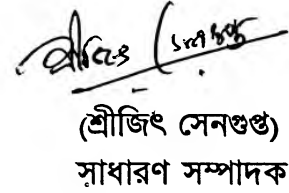 শ্রীজিৎ সেনগুপ্ত
(শ্রীজিৎ সেনগুপ্ত)
সাধারণ সম্পাদক